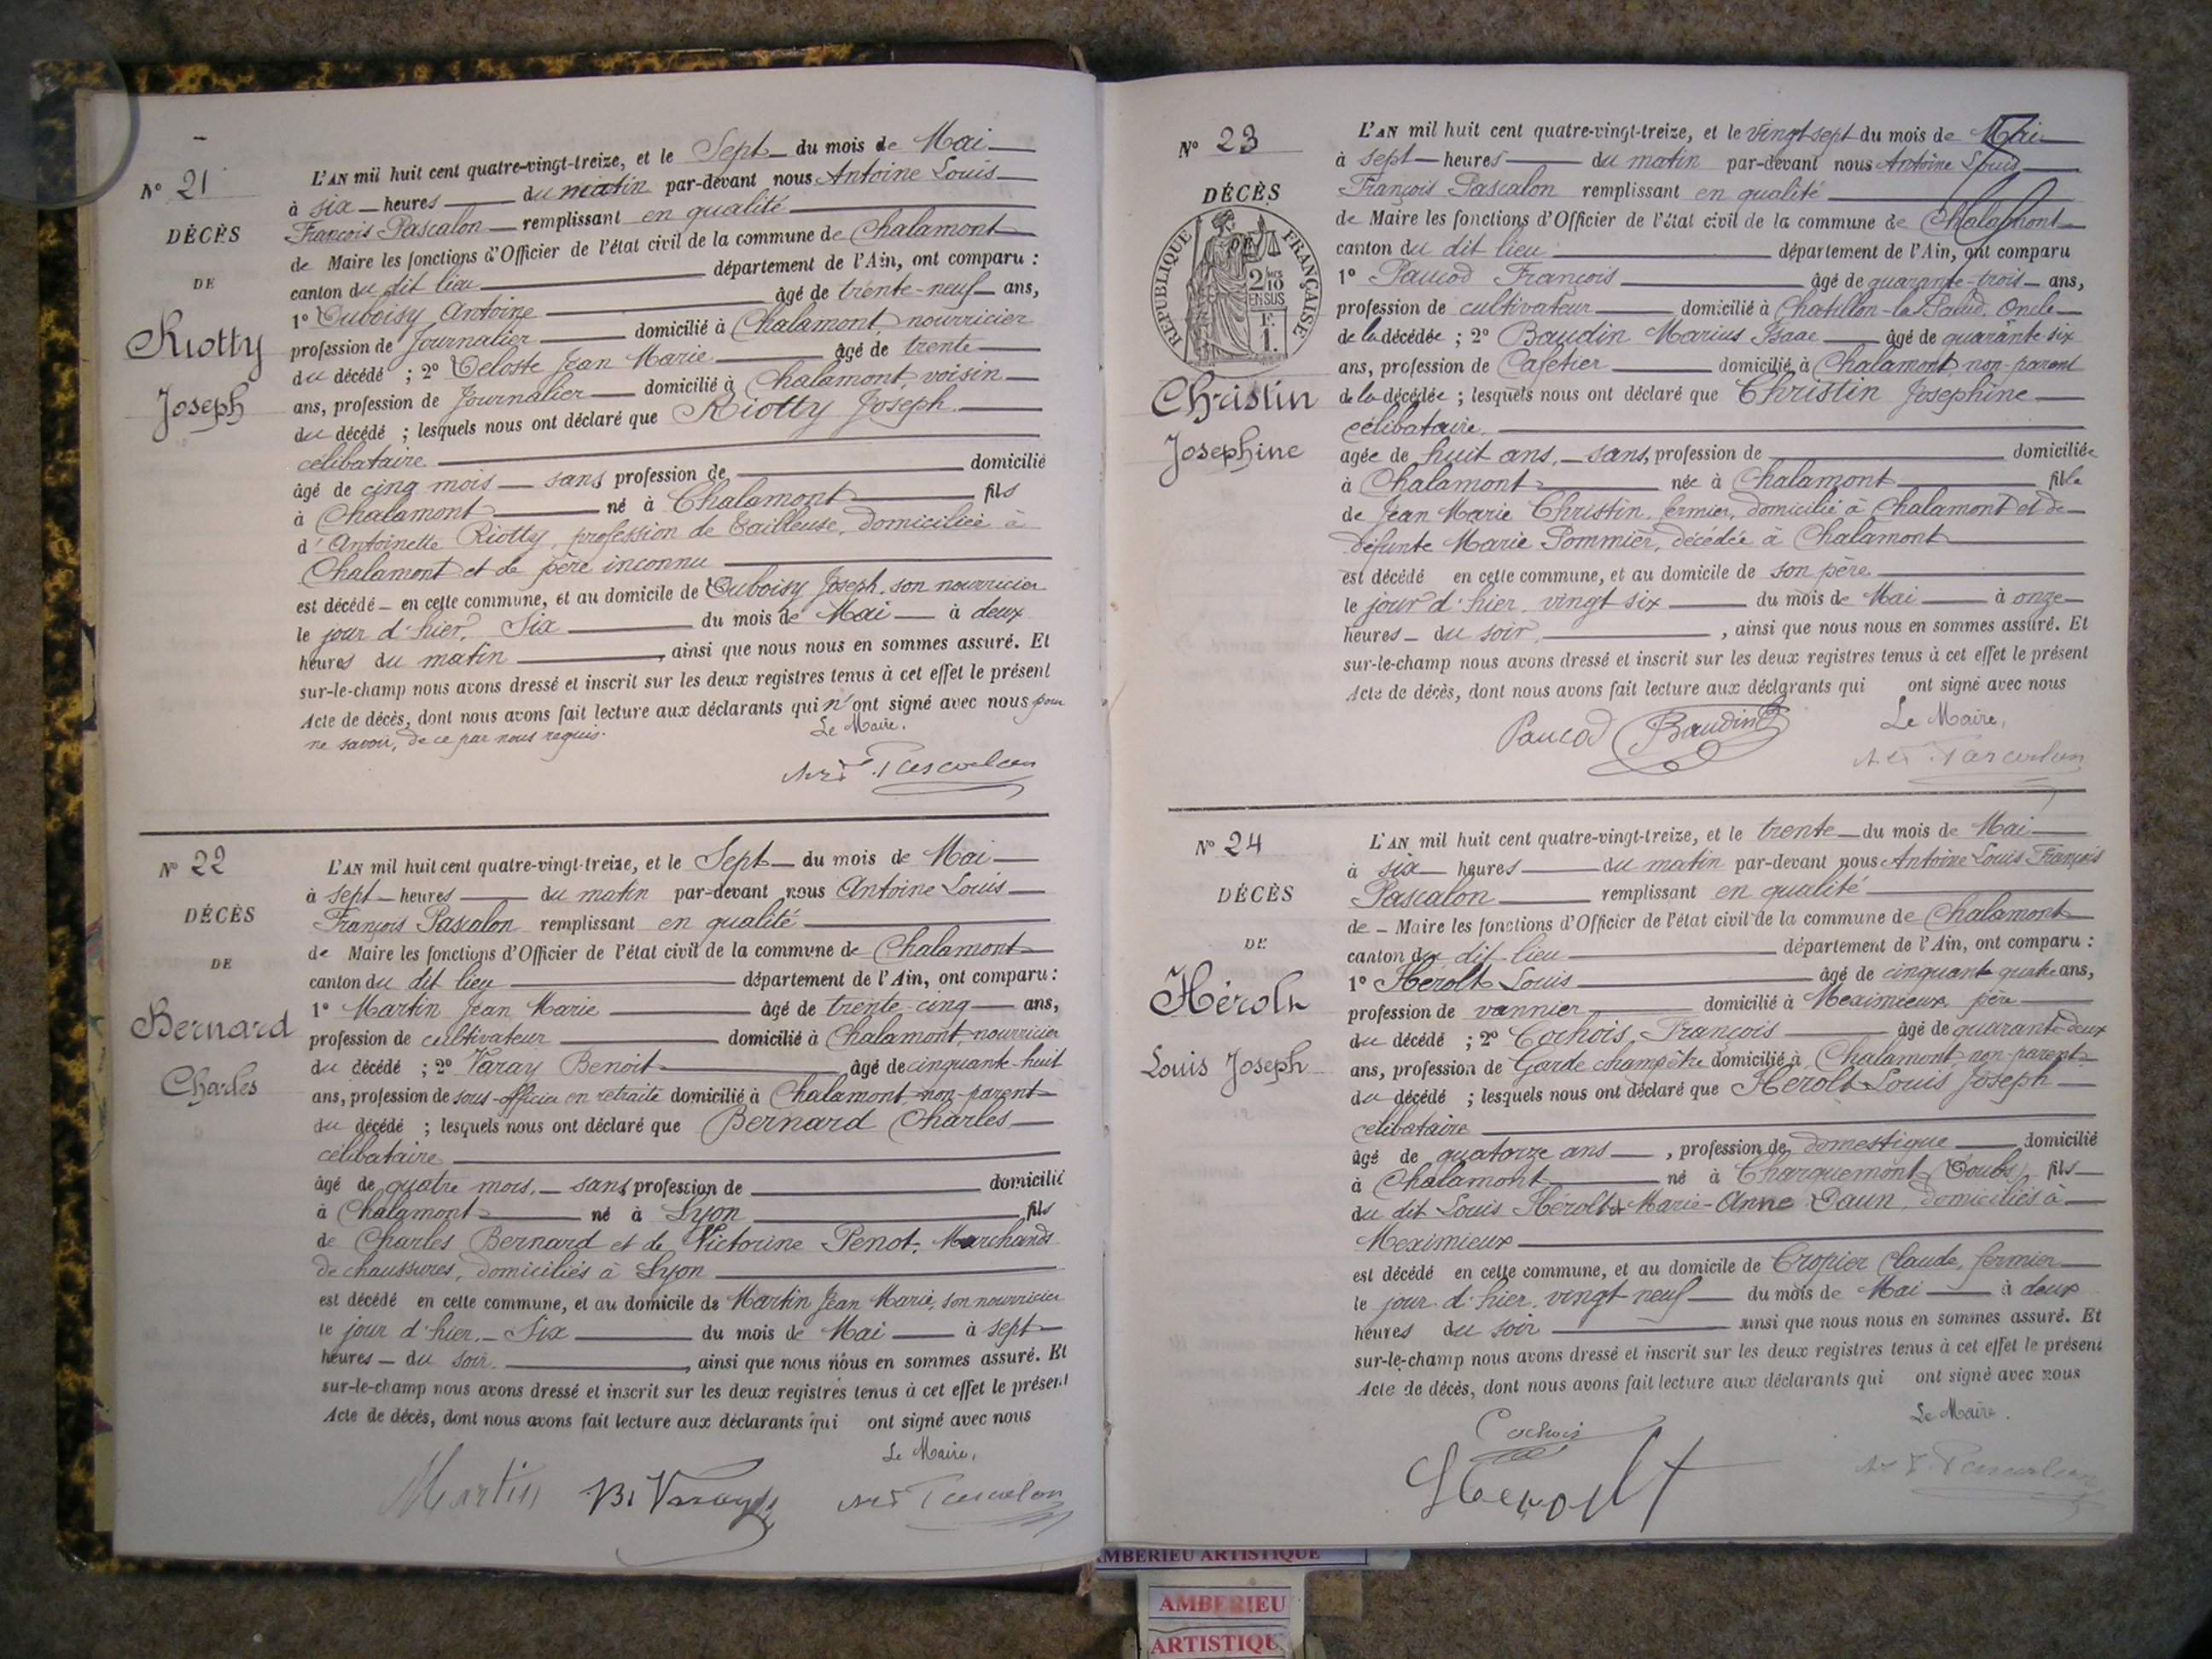 N° 21
DÉCÈS
DE
Riotty
Joseph
L'AN mil huit cent quatre-vingt-treize, et le Sept du mois de Mai
à six heures du matin par-devant nous Antoine Louis
François Pascalon remplissant en qualité
de Maire les fonctions d'Officier de l'état civil de la commune de Chalamont
canton du dit lieu département de l'Ain, ont comparu :
1° Duboisy Antoine âgé de trente-neuf ans,
profession de Journalier domicilié à Chalamont nourricier
du décédé ; 2° Deloste Jean Marie âgé de trente
ans, profession de Journalier domicilié à Chalamont, voisin
du décédé ; lesquels nous ont déclaré que Riotty Joseph
célibataire
âgé de cinq mois sans profession de domicilié
à Chalamont né à Chalamont fils
d'Antoinette Riotty, profession de Tailleuse, domiciliée à
Chalamont et de père inconnu
est décédé en cette commune, et au domicile de Duboisy Joseph, son nourricier
le jour d'hier, Six du mois de Mai à deux
heures du matin, ainsi que nous nous en sommes assuré. Et
sur-le-champ nous avons dressé et inscrit sur les deux registres tenus à cet effet le présent
Acte de décès, dont nous avons fait lecture aux déclarants qui n'ont signé avec nous pour
ne savoir, de ce par nous requis.
Le Maire.
Pascalon
N° 22
DÉCÈS
DE
Bernard
Charles
L'AN mil huit cent quatre-vingt-treize, et le Sept du mois de Mai
à sept heures du matin par-devant nous Antoine Louis
François Pascalon remplissant en qualité
de Maire les fonctions d'Officier de l'état civil de la commune de Chalamont
canton du dit lieu département de l'Ain, ont comparu :
1° Martin Jean Marie âgé de trente-cinq ans,
profession de cultivateur domicilié à Chalamont, nourricier
du décédé ; 2° Varay Benoit âgé de cinquante-huit
ans, profession de sous-officier en retraite domicilié à Chalamont non-parent
du décédé ; lesquels nous ont déclaré que Bernard Charles
célibataire
âgé de quatre mois, sans profession de domicilié
à Chalamont né à Lyon fils
de Charles Bernard et de Victorine Penot, Marchands
de chaussures, domiciliés à Lyon
est décédé en cette commune, et au domicile de Martin Jean Marie, son nourricier
le jour d'hier, Six du mois de Mai à sept
heures du soir, ainsi que nous nous en sommes assuré. Et
sur-le-champ nous avons dressé et inscrit sur les deux registres tenus à cet effet le présent
Acte de décès, dont nous avons fait lecture aux déclarants qui ont signé avec nous
Le Maire,
Martin B. Varay Pascalon
N° 23
DÉCÈS
RÉPUBLIQUE FRANÇAISE
2/10
EN SUS
F.
1.
Christin
Josephine
L'AN mil huit cent quatre-vingt-treize, et le vingt sept du mois de Mai
à sept heures du matin par-devant nous Antoine Louis
François Pascalon remplissant en qualité
de Maire les fonctions d'Officier de l'état civil de la commune de Chalamont
canton du dit lieu département de l'Ain, ont comparu
1° Paucod François âgé de quarante-trois ans,
profession de cultivateur domicilié à Chatillon-la-Palud, Oncle
de la décédée ; 2° Baudin Marius Isaac âgé de quarante six
ans, profession de Cafetier domicilié à Chalamont non-parent
de la décédée ; lesquels nous ont déclaré que Christin Josephine
célibataire.
âgée de huit ans, sans profession de domiciliée
à Chalamont née à Chalamont fille
de Jean Marie Christin, fermier, domicilié à Chalamont et de
défunte Marie Pommier, décédée à Chalamont
est décédé en cette commune, et au domicile de son père
le jour d'hier vingt six du mois de Mai à onze
heures du soir, ainsi que nous nous en sommes assuré. Et
sur-le-champ nous avons dressé et inscrit sur les deux registres tenus à cet effet le présent
Acte de décès, dont nous avons fait lecture aux déclarants qui ont signé avec nous
Le Maire,
Paucod Baudin Pascalon
N° 24
DÉCÈS
DE
Hérolt
Louis Joseph
L'AN mil huit cent quatre-vingt-treize, et le trente du mois de Mai
à six heures du matin par-devant nous Antoine Louis François
Pascalon remplissant en qualité
de Maire les fonctions d'Officier de l'état civil de la commune de Chalamont
canton du dit lieu département de l'Ain, ont comparu :
1° Hérolt Louis âgé de cinquante quatre ans,
profession de vannier domicilié à Meximieux, père
du décédé ; 2° Cochois François âgé de quarante-deux
ans, profession de Garde champêtre domicilié à Chalamont non-parent
du décédé ; lesquels nous ont déclaré que Hérolt Louis Joseph
célibataire
âgé de quatorze ans, profession de domestique domicilié
à Chalamont né à Charquemont (Doubs) fils
du dit Louis Hérolt & Marie-Anne Daun, domiciliés à
Meximieux
est décédé en cette commune, et au domicile de Cropier Claude, fermier
le jour d'hier, vingt neuf du mois de Mai à deux
heures du soir ainsi que nous nous en sommes assuré. Et
sur-le-champ nous avons dressé et inscrit sur les deux registres tenus à cet effet le présent
Acte de décès, dont nous avons fait lecture aux déclarants qui ont signé avec nous
Le Maire.
Cochois
Herolt Pascalon
AMBERIEU ARTISTIQUE
AMBERIEU
ARTISTIQU